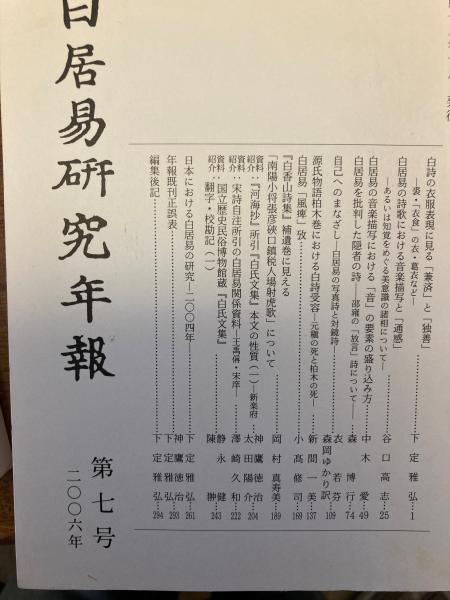 白居易研究年報
第七号
二〇〇六年
白詩の衣服表現に見る「兼済」と「独善」
―裘・「衣食」の衣・葛衣など―……下定雅弘…1
白居易の詩歌における音楽描写と「通感」
―あるいは知覚をめぐる美意識の諸相について―……谷口高志…25
白居易の音楽描写における「音」の要素の盛り込み方……中木愛…49
白居易を批判した隠者の詩――邵雍の「放言」詩について――……森博行…74
自己へのまなざし―白居易の写真詩と対鏡詩―……衣若芬
森岡ゆかり訳…109
源氏物語柏木巻における白詩受容―元稹の死と柏木の死―……新間一美…137
白居易「風痺」攷……小髙修司…169
『白香山詩集』補遺巻に見える
「南陽小将張彦硤口鎮税人場射虎歌」について……岡村真寿美…189
資料紹介:『河海抄』所引『白氏文集』本文の性質(一)―新楽府―……神鷹徳治
太田陽介…204
資料紹介:宋詩自注所引の白居易関係資料―王禹偁・宋庠―……澤崎久和…222
資料紹介:国立歴史民俗博物館蔵『白氏文集』
翻字・校勘記(一)……静永健
陳翀…243
日本における白居易の研究―二〇〇四年―……下定雅弘…261
年報既刊正誤表……神鷹徳治
下定雅弘…293
編集後記……下定雅弘…294